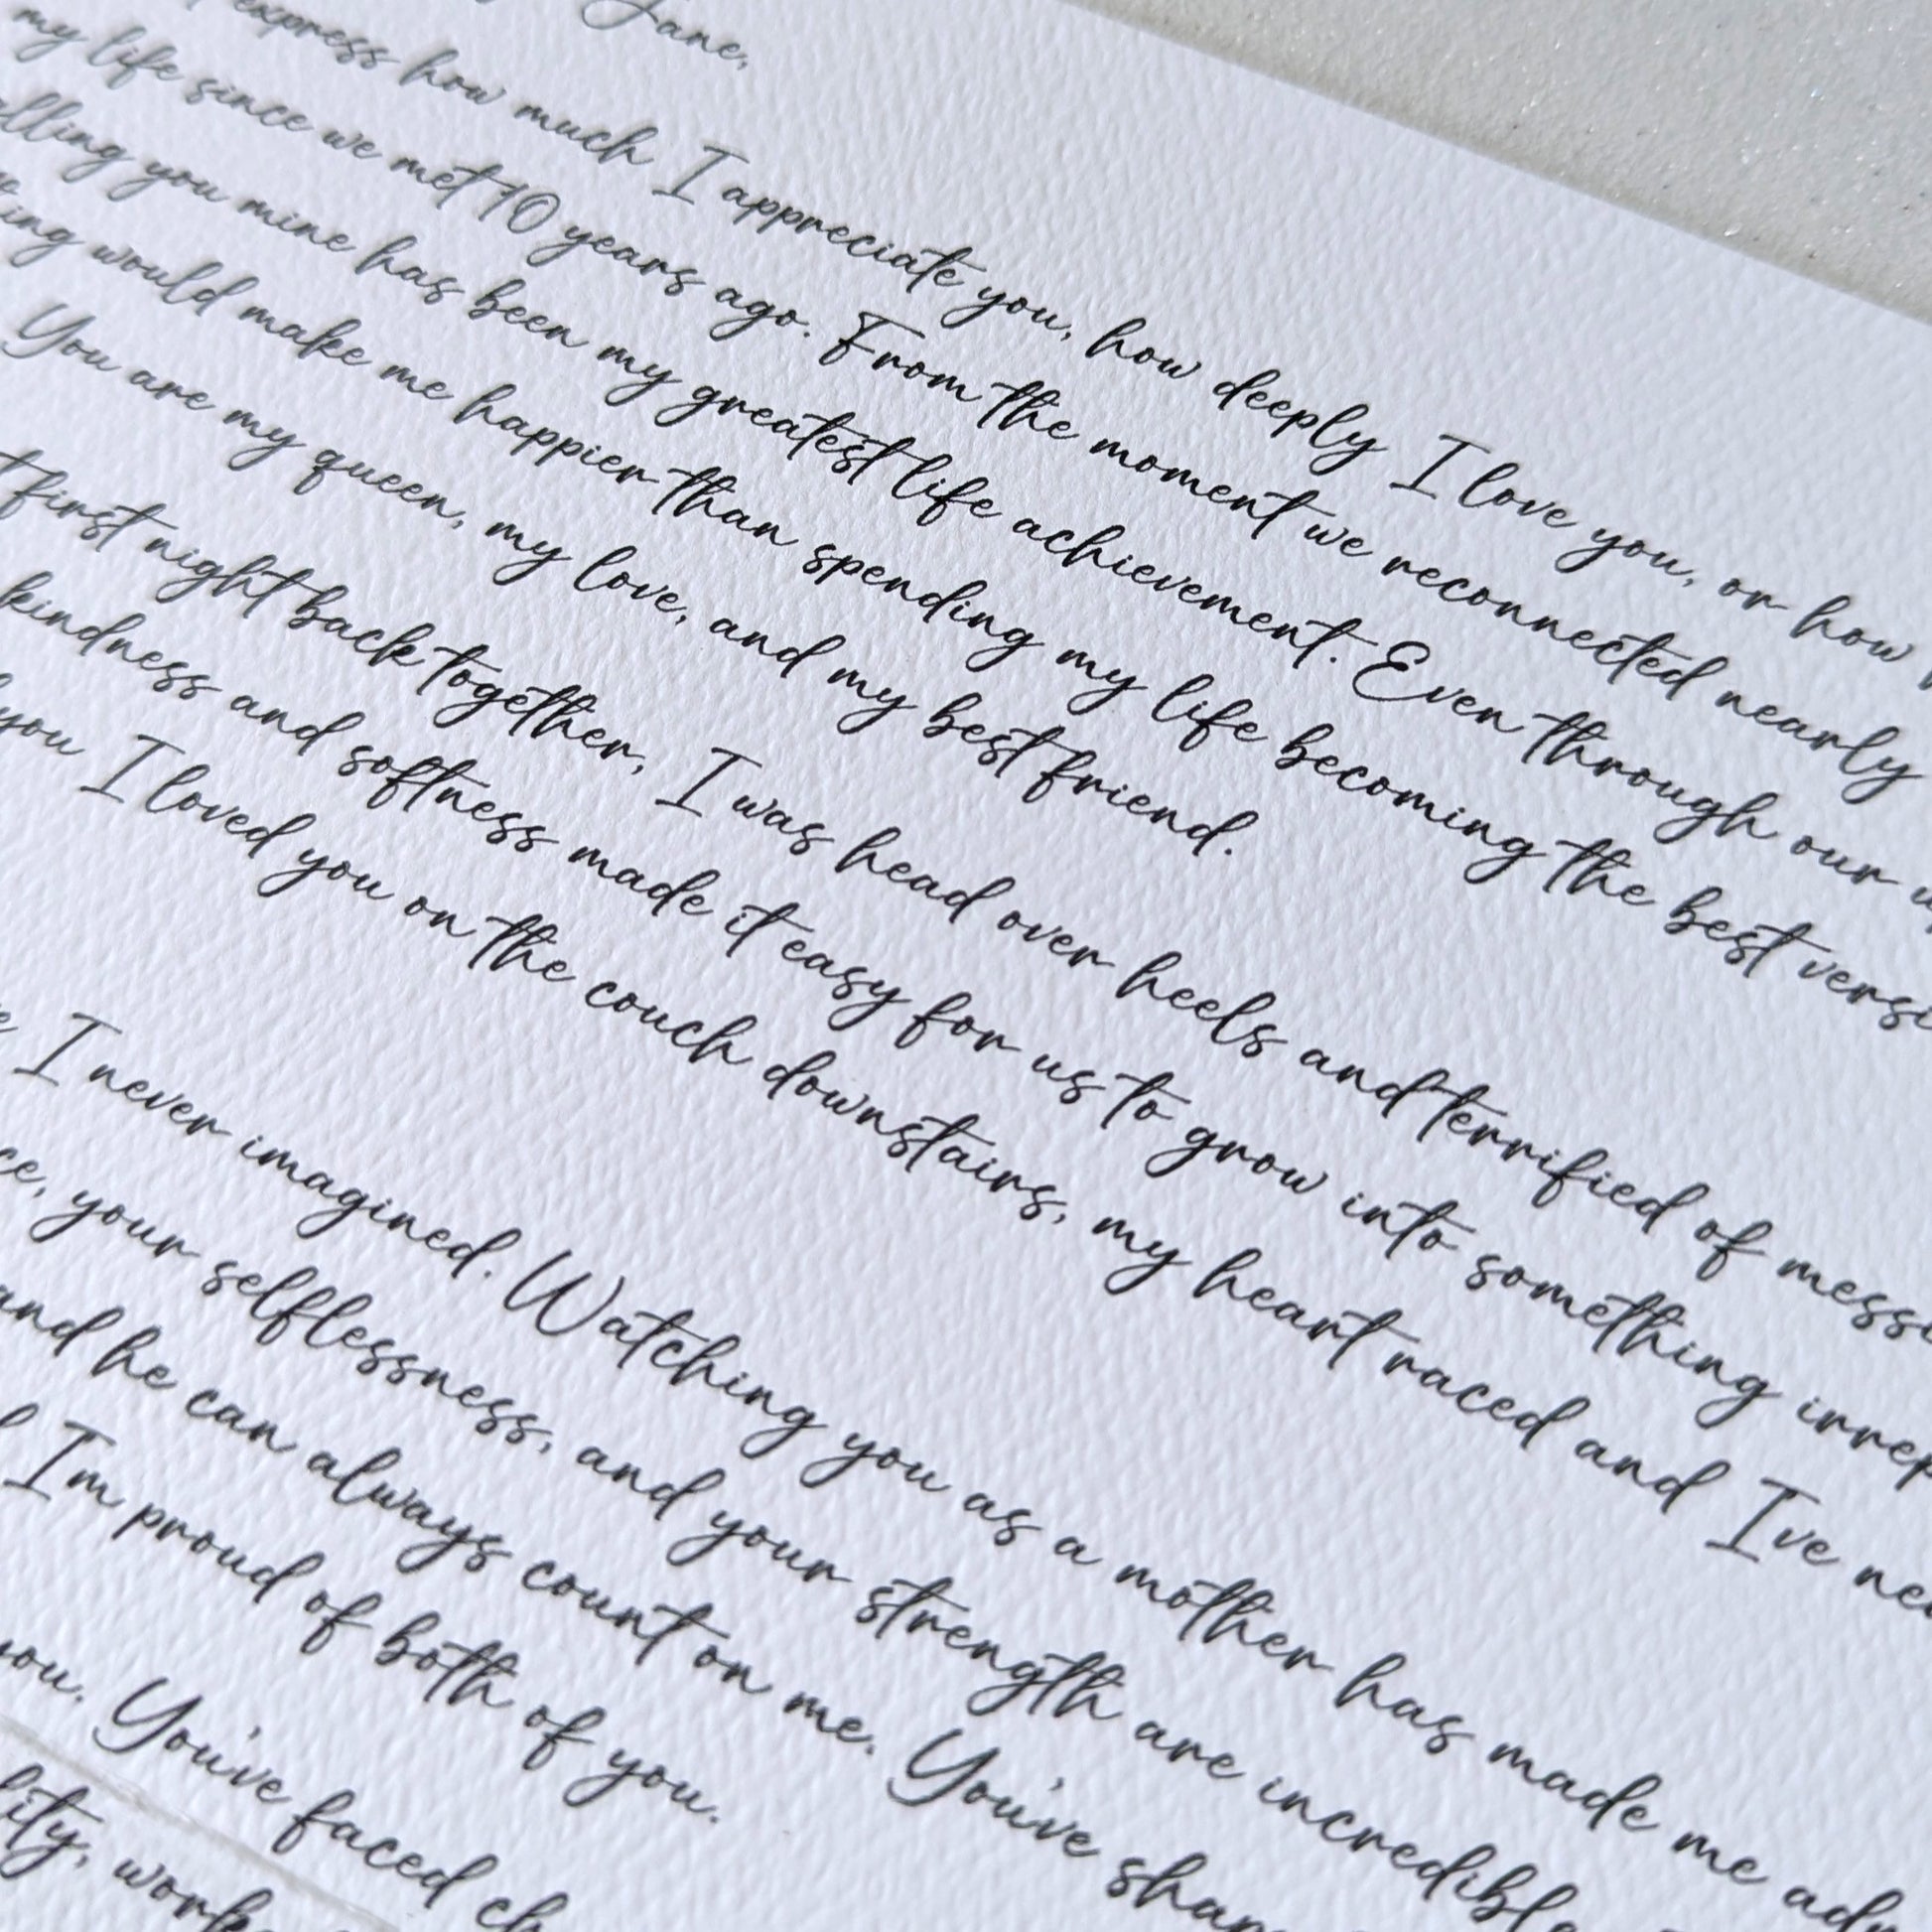 Jane,
express how much I appreciate you, how deeply I love you, or how
my life since we met 10 years ago. From the moment we reconnected nearly
lling you mine has been my greatest life achievement. Even through our
ing would make me happier than spending my life becoming the best versi
You are my queen, my love, and my best friend.
t first night back together, I was head over heels and terrified of messi
kindness and softness made it easy for us to grow into something irrep
you I loved you on the couch downstairs, my heart raced and I've ne
I never imagined. Watching you as a mother has made me ad
ce, your selflessness, and your strength are incredibl
and he can always count on me. You've sha
I'm proud of both of you.
you. You've faced ch
lity, work